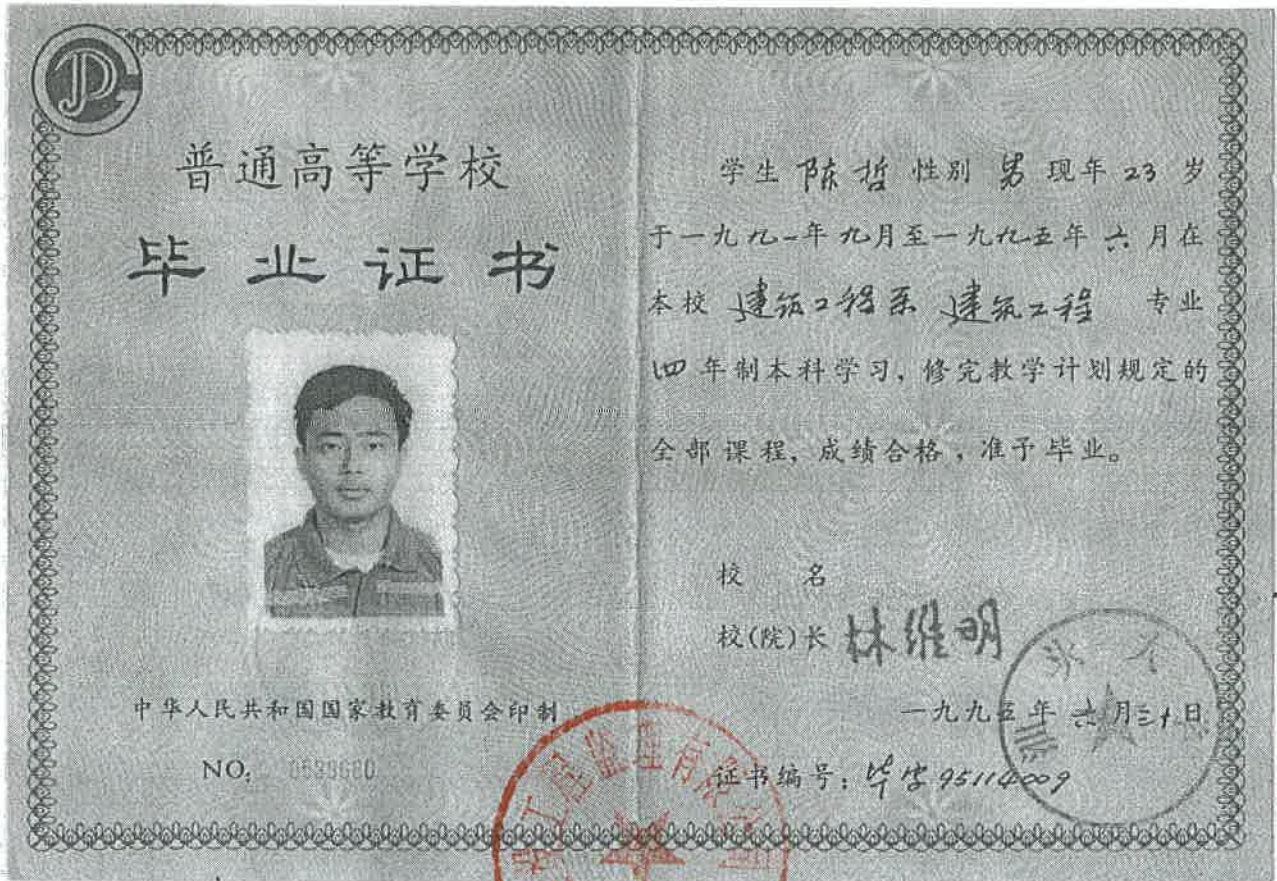 普通高等学校
毕业证书
中华人民共和国国家教育委员会印制
NO:
学生 陈哲 性别 男 现年 23 岁
于一九九一年九月至一九九五年六月在
本校 建筑工程系 建筑工程 专业
四年制本科学习，修完教学计划规定的
全部课程，成绩合格，准予毕业。
校 名
校(院)长 林维明
一九九五年六月三十日
证书编号：毕字95114009
工程监理有限公司